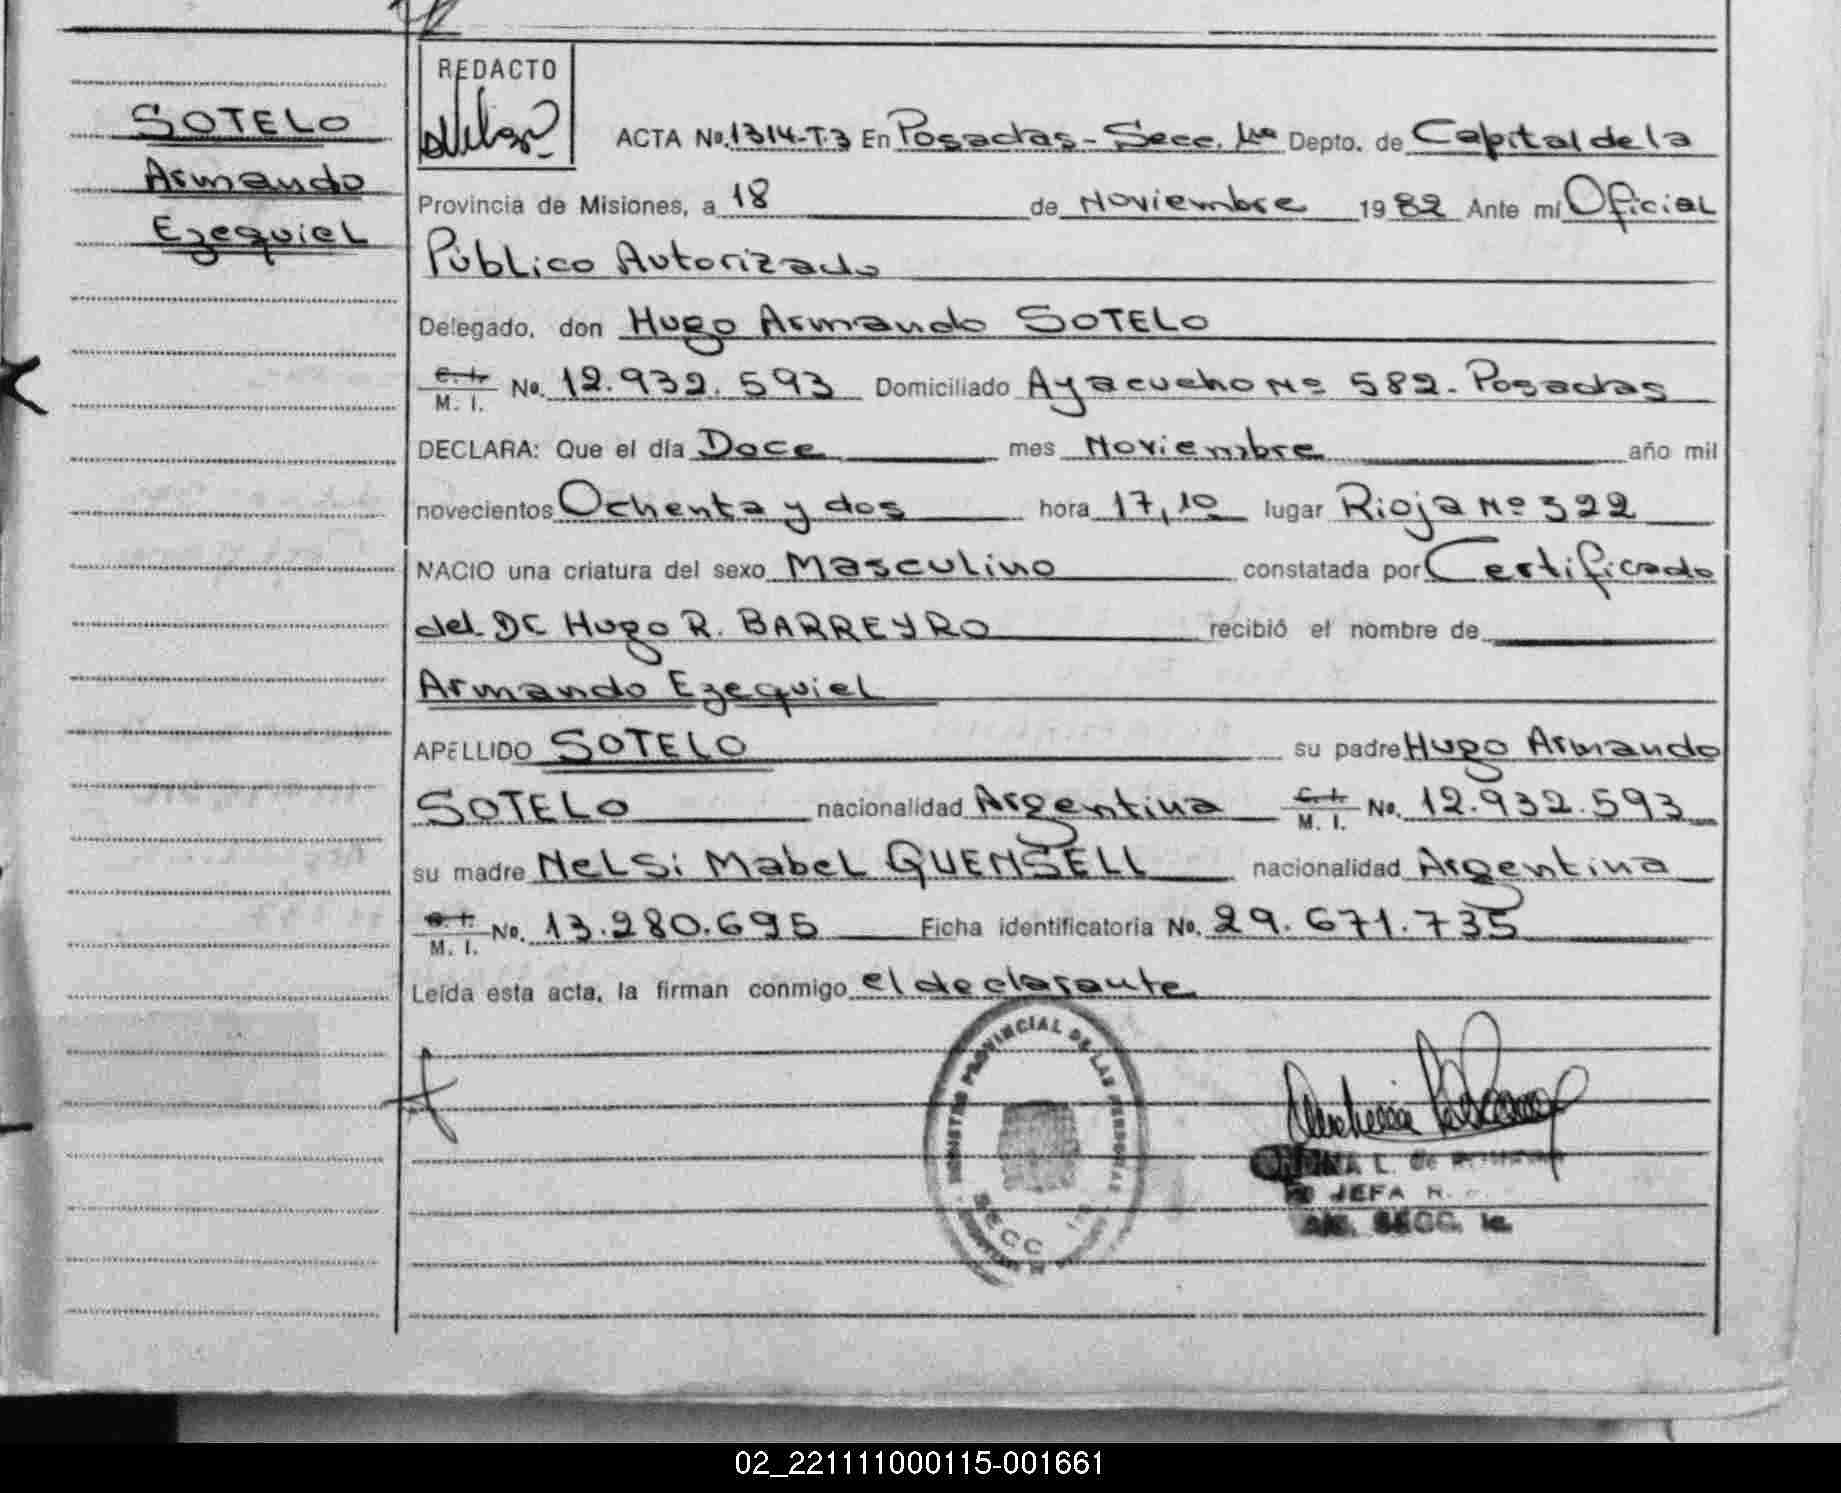 SOTELO
Armando
Ezequiel
REDACTO
ACTA No. 1314-T.3 En Posadas - Secc. 1ra Depto. de Capital de la
Provincia de Misiones, a 18 de Noviembre 1982 Ante mí Oficial
Público Autorizado
Delegado, don Hugo Armando SOTELO
C. I. M. I. No. 12.932.593 Domiciliado Ayacucho Nº 582 - Posadas
DECLARA: Que el día Doce mes Noviembre año mil
novecientos Ochenta y dos hora 17,10 lugar Rioja Nº 322
NACIO una criatura del sexo Masculino constatada por Certificado
del DC Hugo R. BARREYRO recibió el nombre de
Armando Ezequiel
APELLIDO SOTELO su padre Hugo Armando
SOTELO nacionalidad Argentina C. I. M. I. No. 12.932.593
su madre Nelsi Mabel QUENSELL nacionalidad Argentina
C. I. M. I. No. 13.280.695 Ficha identificatoria No. 29.671.735
Leída esta acta, la firman conmigo el declarante
PROVINCIAL DE LAS PERSONAS
SECC 1ra
L. de
JEFA R.
SECC. 1a.
02_221111000115-001661